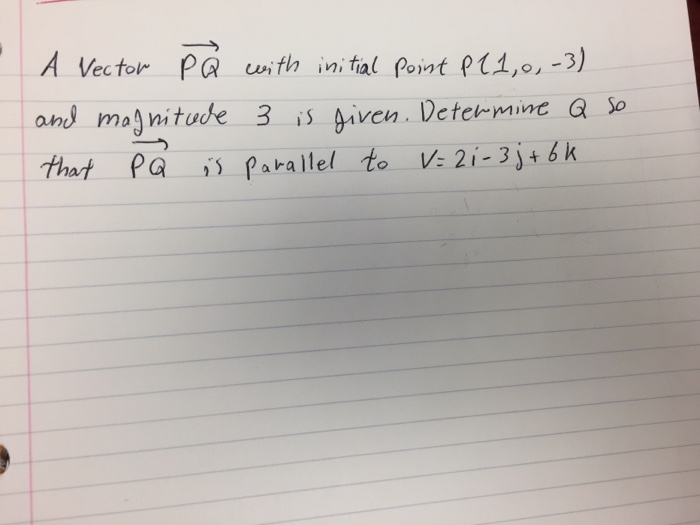 A Vector PQ with initial Point P(1,0,-3)
and magnitude 3 is given. Determine Q so
that PQ is Parallel to V=2i-3j+6k